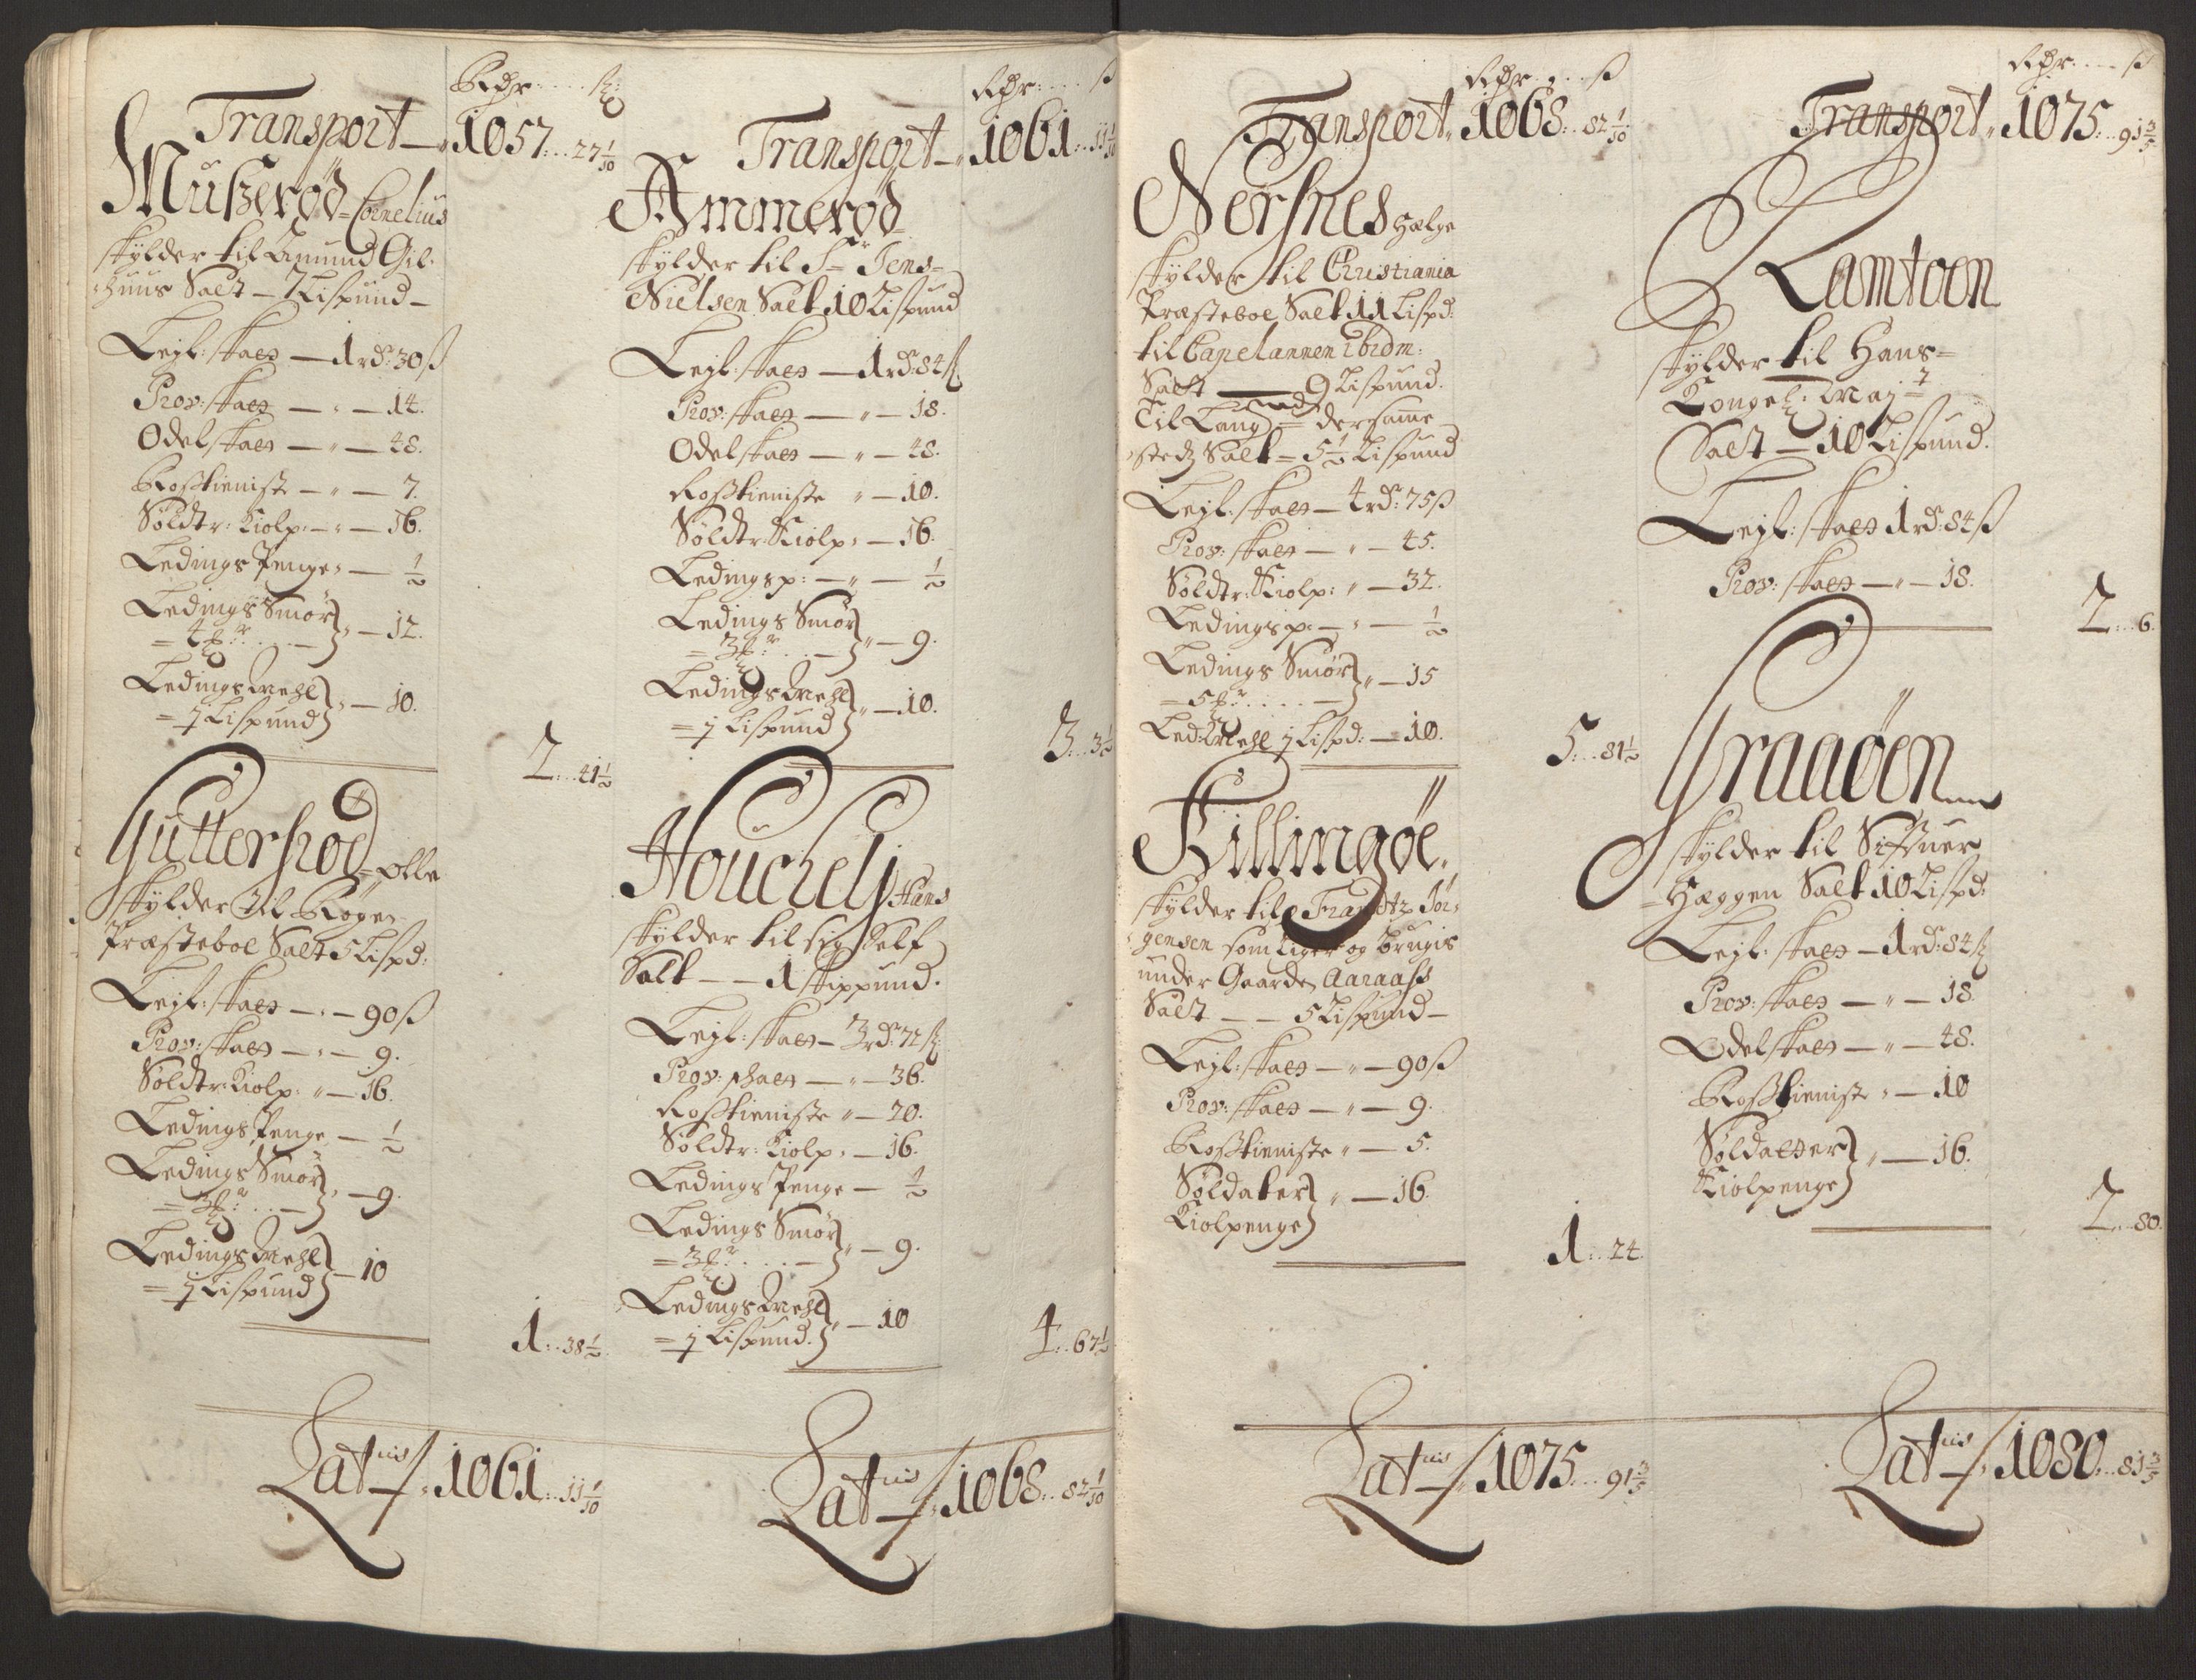 Rdr: .... s:
Transport — 1057: .. 27 1/10
Mußerød = Cornelius
skylder til Amund Gil-
huus Salt — 7 Lispund —
Lejl: skatt — 1 rd: 30 ß
Prov: skatt — " — 14.
Odel skatt — " — 48.
Roßtieniste — " — 7.
Soldtr: Kiolp: — " — 16.
Ledings Penge " — 1/2
Ledings Smør
= 4 . . . — } " — 12.
Ledings Mehl
= j Lispund } " — 10.
2: .. 41 1/2
Gutterød = Olle
skylder til Røge
Præstebol Salt 5 Lispd:
Lejl: skatt — " — 90 ß
Prov: skatt — " — 9.
Soldtr: Kiolp: " — 16.
Ledings Penge — 1/2
Ledings Smør
= 3 . . . — } " — 9.
Ledings Mehl
= j Lispund } — 10
1: .. 38 1/2
Latus — 1061: .. 11 1/10
Rdr: .... ß
Transport — 1061: .. 11 1/10
Ammerød
skylder til Sr Jens =
Nielsen Salt 10 Lispund
Lejl: skatt — 1 rd: 84 ß
Prov: skatt — " — 18.
Odel skatt — " — 48.
Roßtieniste " — 10.
Soldtr: Kiolp: — 16.
Ledings p: — " — 1/2
Ledings Smør
= 3 . . . — } " — 9.
Ledings Mehl
= j Lispund } " — 10.
3: .. 3 1/2
Houchelj Hans
skylder til sig Self
Salt — — 1 skippund.
Lejl: skatt — 3 rd: 72 ß
Prov: skatt — " — 36.
Roßtieniste " — 20.
Soldtr: Kiolp: — 16.
Ledings Penge — 1/2
Ledings Smør
= 3 . . . — } " — 9.
Ledings Mehl
= j Lispund. } " — 10
4: .. 67 1/2
Latus — 1068: .. 82 1/10
Rdr: .... ß
Transport " 1068: .. 82 1/10
Nersnes Hælge
skylder til Christiania
Præstebol Salt 11 Lispd:
til Capelannen ibidm:
Salt — 9 Lispund.
Til Lang = der samme
steds Salt = 5 1/2 Lispund
Lejl: skatt — 4 rd: 75 ß
Prov: skatt — " — 45.
Soldtr: Kiolp: " — 32.
Ledings p: — " — 1/2
Ledings Smør
= 5 . . . . — } " — 15
Led: Mehl j Lispd: — 10.
5: .. 81 1/2
Killingøe.
skylder til Frandtz Jør-
gensen som liger og brugis
under Gaarden Aaraaß
Salt — — 5 Lispund —
Lejl: skatt — " — 90 ß
Prov: skatt — " — 9.
Roßtieniste " — 5.
Soldater
Kiolpenge } " — 16.
1: .. 24.
Latus — 1075: .. 91 3/5
Rdr: .... ß
Transport " 1075: .. 91 3/5
Ramtoen
skylder til Hans =
Kongel: Maj:
Salt — 10 Lispund.
Lejl: skatt 1 rd: 84 ß
Prov: skatt — " — 18.
2: .. 6.
Graaøen
skylder til
Hæggen Salt 10 Lispd:
Lejl: skatt — 1 rd: 84 ß
Prov: skatt — " — 18.
Odel skatt — " — 48.
Roßtieniste " — 10
Soldater
Kiolpenge } " — 16.
2: .. 80.
Latus — 1080: .. 81 3/5